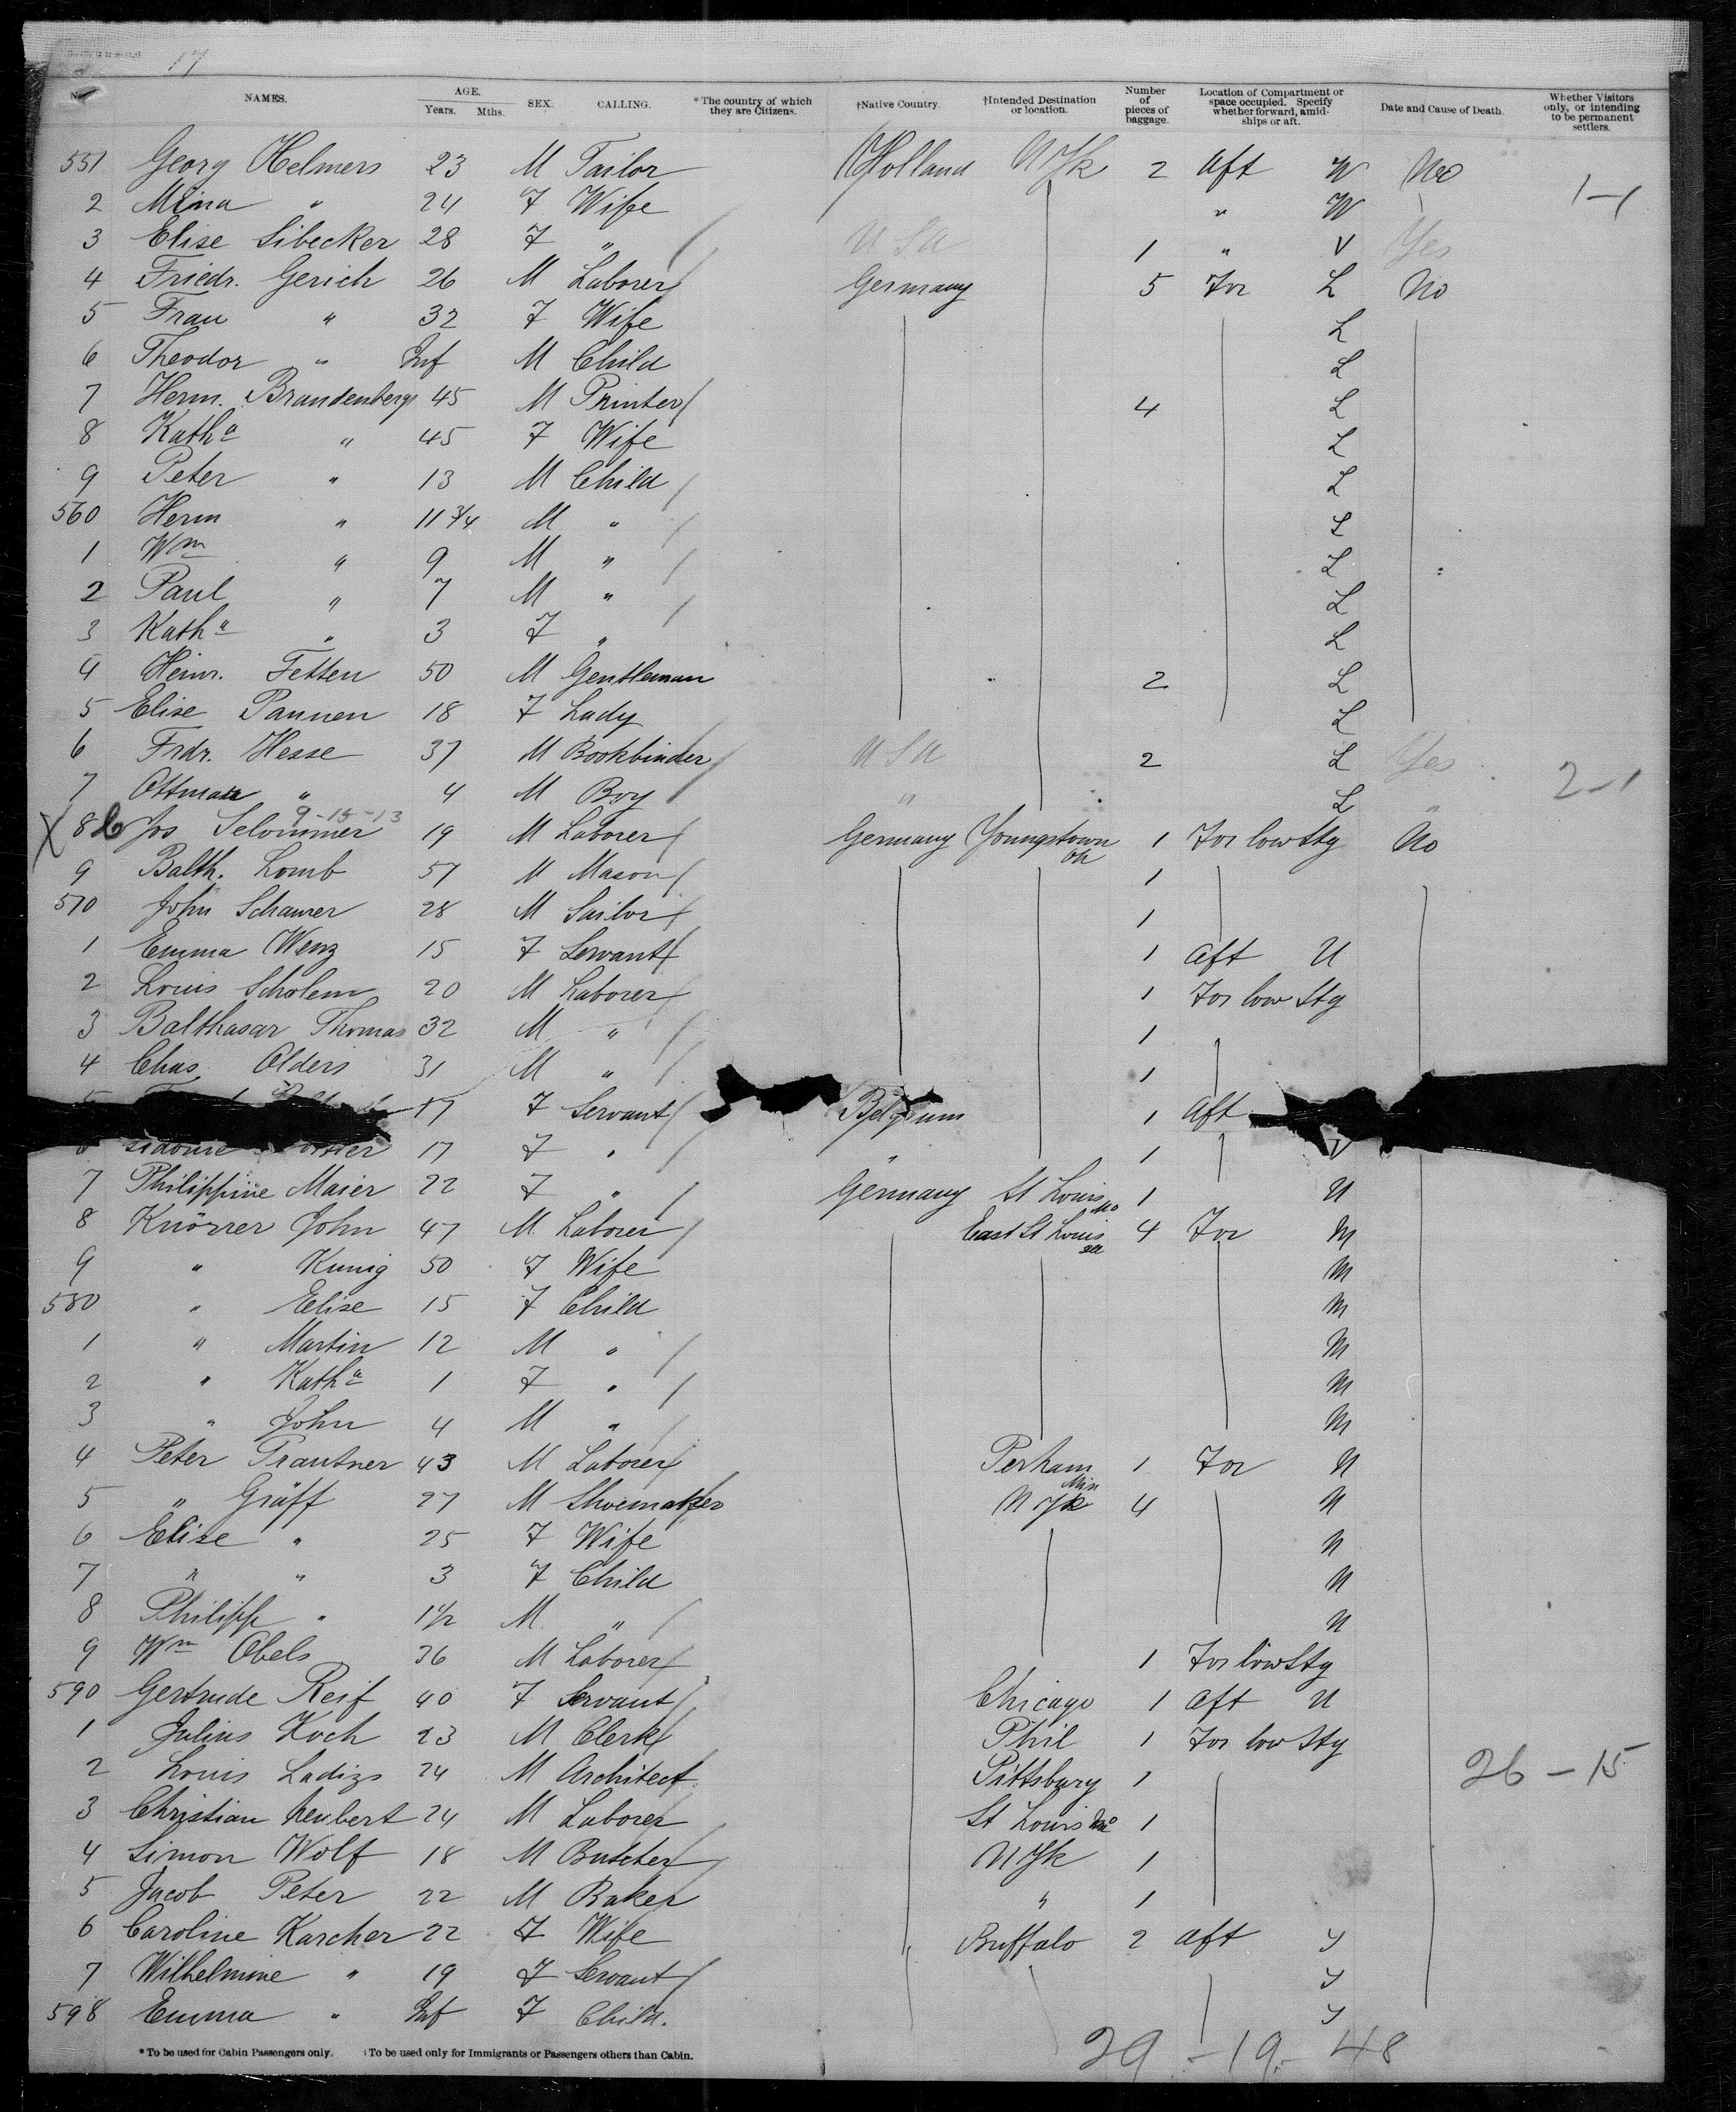 17
No. NAMES. AGE. Years. Mths. SEX. CALLING. *The country of which they are Citizens. †Native Country. †Intended Destination or location. Number of pieces of baggage. Location of Compartment or space occupied. Specify whether forward, amidships or aft. Date and Cause of Death. Whether Visitors only, or intending to be permanent settlers.
551 Georg Helmers 23 M Tailor Holland N Yk 2 Aft W No
2 Mina " 24 F Wife " W 1-1
3 Elise Sibecker 28 F " U S A 1 " V Yes
4 Friedr. Gerich 26 M Laborer Germany 5 For L No
5 Frau " 32 F Wife L
6 Theodor " Inf M Child L
7 Herm. Brandenberg 45 M Printer 4 L
8 Katha " 45 F Wife L
9 Peter " 13 M Child L
560 Herm " 11 3/4 M " L
1 Wm " 9 M " L
2 Paul " 7 M " L
3 Katha " 3 F " L
4 Heinr. Fetten 50 M Gentleman 2 L
5 Elise Pannen 18 F Lady L
6 Frdr. Hesse 37 M Bookbinder U S A 2 L Yes
7 Ottmar " 4 M Boy " L " 2-1
9-15-13
X 8 Jos Selommer 19 M Laborer Germany Youngstown Oh 1 For low Stg No
9 Balth. Lomb 57 M Mason 1
570 John Schamer 28 M Sailor 1
1 Emma Wenz 15 F Servant 1 Aft U
2 Louis Scholem 20 M Laborer 1 For low Stg
3 Balthasar Thomas 32 M " 1
4 Chas. Olders 31 M " 1
5 17 F Servant Belgium 1 Aft
6 17 F " " 1
7 Philippine Maier 22 F " Germany St Louis Mo 1 U
8 Knörrer John 47 M Laborer East St Louis 4 For M
9 " Kunig 50 F Wife M
580 " Elise 15 F Child M
1 " Martin 12 M " M
2 " Katha 1 F " M
3 " John 4 M " M
4 Peter Trautner 43 M Laborer Perham Min 1 For N
5 " Gräff 27 M Shoemaker N Yk 4 N
6 Elise " 25 F Wife N
7 " " 3 F Child N
8 Philipp " 1 1/2 M " N
9 Wm Obels 36 M Laborer 1 For low Stg
590 Gertrude Reif 40 F Servant Chicago 1 Aft U
1 Julius Koch 23 M Clerk Phil 1 For low Stg
2 Louis Ladizs 24 M Architect Pittsburg 1 26-15
3 Christian Neubert 24 M Laborer St Louis Mo 1
4 Simon Wolf 18 M Butcher N Yk 1
5 Jacob Peter 22 M Baker " 1
6 Caroline Karcher 22 F Wife Buffalo 2 Aft Y
7 Wilhelmine " 19 F Servant Y
598 Emma " Inf F Child. Y
29 - 19 - 48
*To be used for Cabin Passengers only. †To be used only for Immigrants or Passengers others than Cabin.